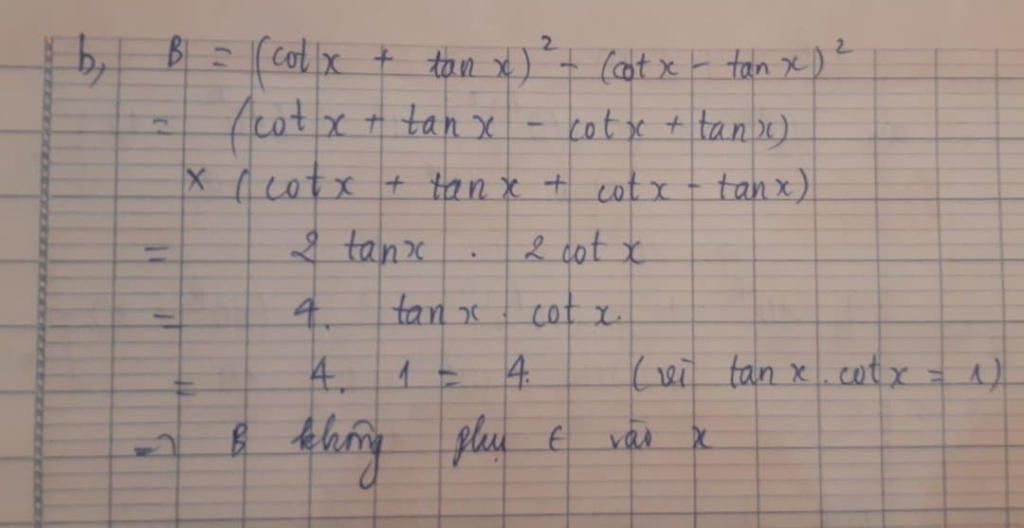 b, B = (cot x + tan x)² - (cot x - tan x)²
= (cot x + tan x - cot x + tan x)
× (cot x + tan x + cot x - tan x)
= 2 tan x . 2 cot x
= 4. tan x . cot x.
= 4. 1 = 4. (vì tan x . cot x = 1)
=> B không phụ ∈ vào x